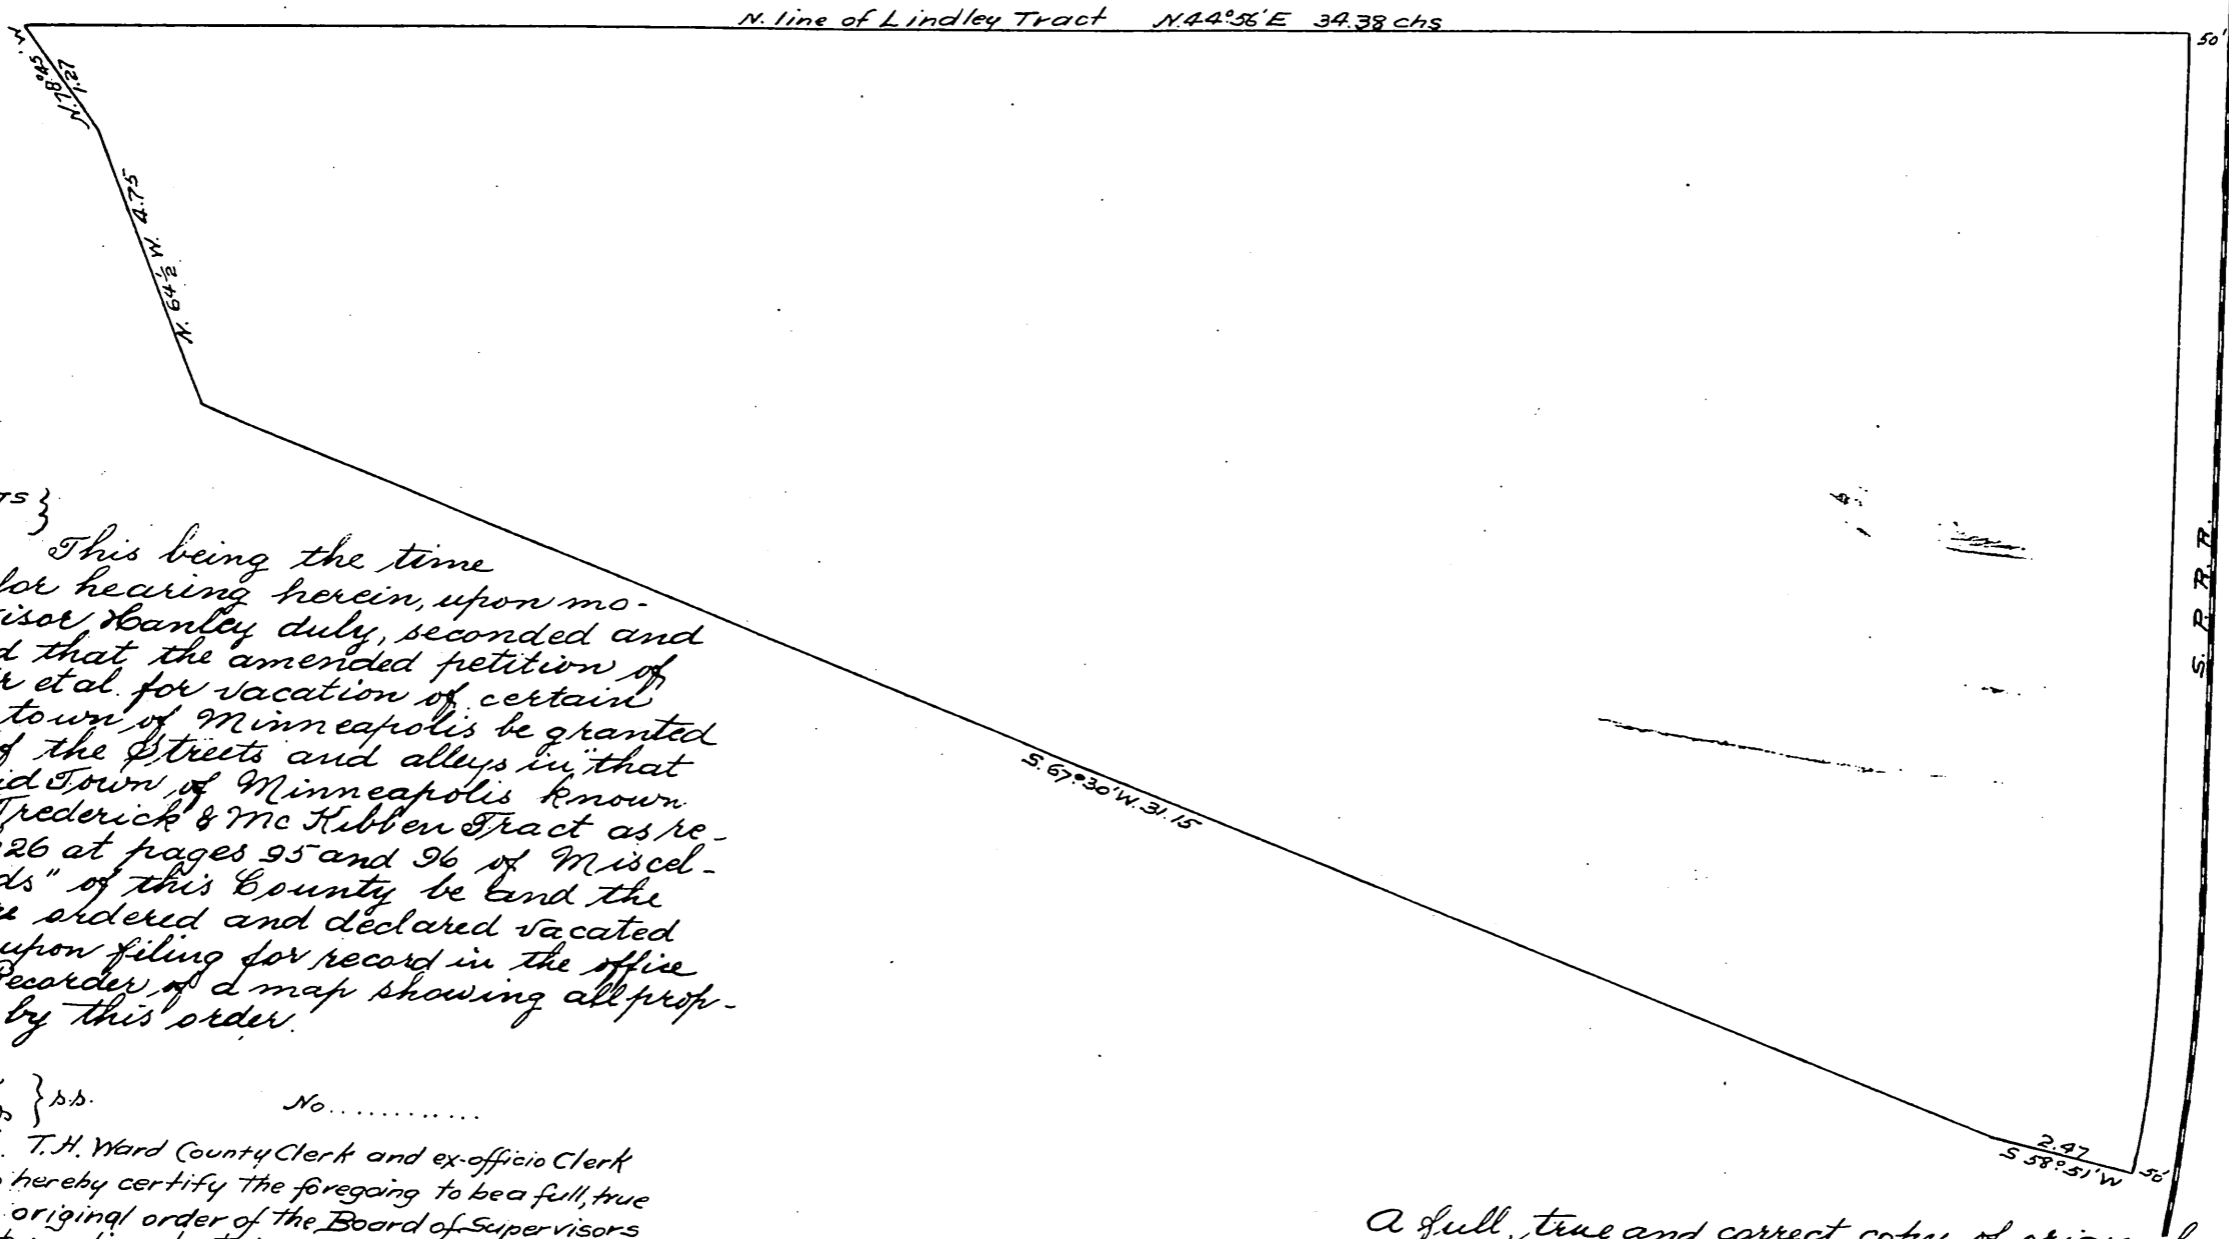 N. line of Lindley Tract N.44°56'E 34.38 chs
50'
N.78°45' W.
1.27
N. 64½ W. 4.75
S. P. R. R.
S. 67°30' W. 31.15
2.47
S 58°51' W
50'
TS }
This being the time
for hearing herein, upon mo-
isor Hanley duly, seconded and
d that the amended petition of
r et al. for vacation of certain
town of Minneapolis be granted
f the Streets and alleys in "that
id Town of Minneapolis known
Frederick & McKibben Tract as re-
26 at pages 95 and 96 of Miscel-
ds" of this County be and the
ordered and declared vacated
upon filing for record in the office
Recorder of a map showing all prop-
by this order.
} s.s. No............
T.H. Ward County Clerk and ex-officio Clerk
hereby certify the foregoing to be a full, true
original order of the Board of Supervisors
A full, true and correct copy of original